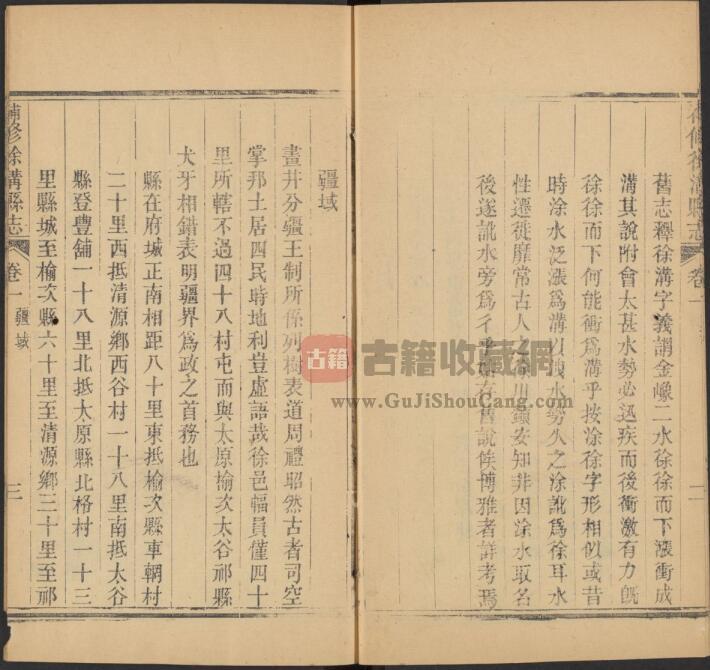 補修徐溝縣志
卷一
二
舊志釋徐溝字義謂金嶑二水徐徐而下漲衝成
溝其說附會太甚水勢必迅疾而後衝激有力旣
徐徐而下何能衝爲溝乎按涂徐字形相似或昔
時涂水泛漲爲溝以洩水勢久之涂訛爲徐耳水
性遷徙靡常古人
安知非因涂水取名
後遂訛水旁爲彳
存舊說俟博雅者詳考焉
疆域
畫井分疆王制所係列樹表道周禮昭然古者司空
掌邦土居四民時地利豈虛語哉徐邑幅員僅四十
里所轄不過四十八村屯而與太原榆次太谷祁縣
犬牙相錯表明疆界爲政之首務也
縣在府城正南相距八十里東抵榆次縣車輞村
二十里西抵清源鄉西谷村一十八里南抵太谷
縣登豐舖一十八里北抵太原縣北格村一十三
里縣城至榆次縣六十里至清源鄉二十里至祁
補修徐溝縣志
卷一
疆域
三
古籍
古籍收藏網
www.GuJiShouCang.com